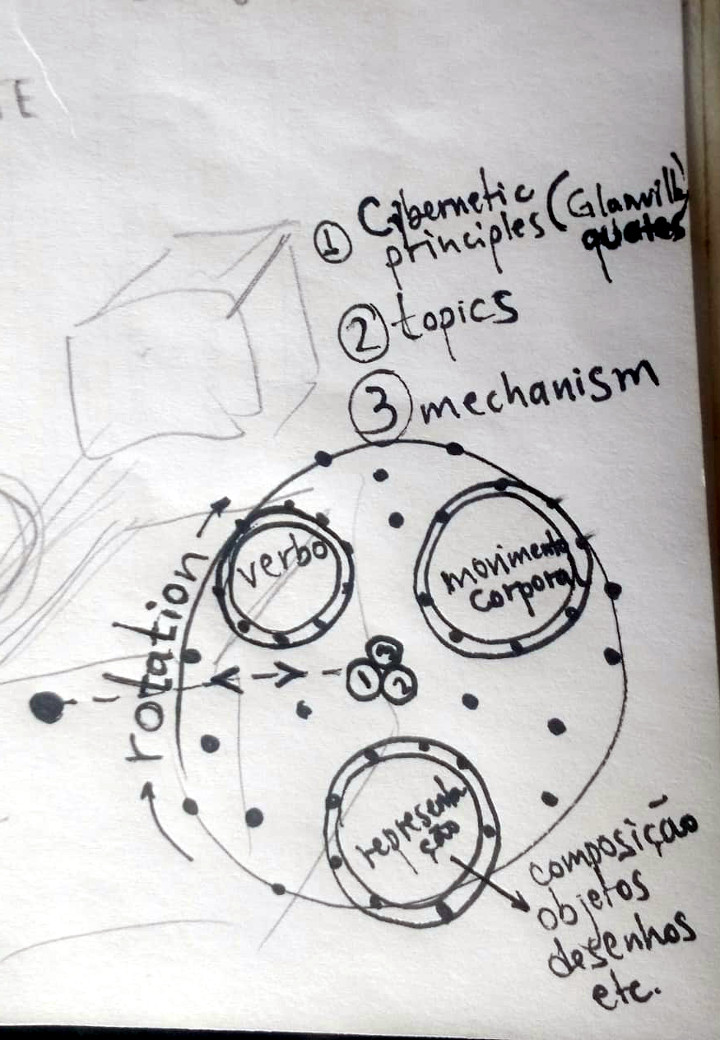 TE
① Cybernetic (Glanville
principles quotes)
② topics
③ mechanism
rotation
verbo
movimento
corporal
③
① ②
representa
ção
composição
objetos
desenhos
etc.